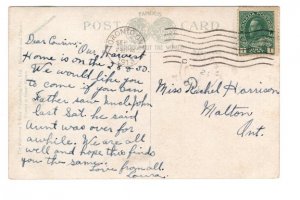 FAMOUS
POST CARD
TORONTO
Dear Cousin:
Our Harvest
Home is on the 28 & 30.
We would like you
to come if you can
Father saw Uncle John
last Sat. he said
Aunt was over for
awhile. We are all
well and hope this finds
you the same.
Love from all.
Laura.
Miss Rachel Harrison
Malton
Ont.